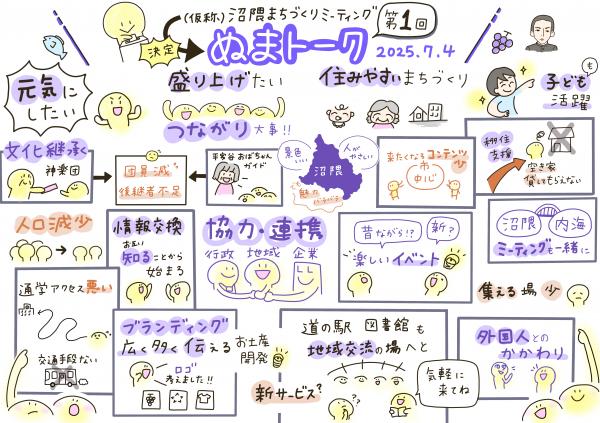 (仮称)沼隈まちづくりミーティング
第1回
決定
ぬまトーク
2025.7.4
元気に
したい
盛り上げたい
住みやすいまちづくり
子どもも
活躍
つながり大事!!
文化継承
神楽団
団員減
後継者不足
平家谷おばちゃん
ガイド
景色
いい
人が
やさしい
沼隈
来たくなるコンテンツ少
市
中心
移住
支援
空き家
貸してもらえない
人口減少
情報交換
お互い
知ることから
始まる
協力・連携
行政 地域 企業
昔ながら!?
新?
楽しいイベント
沼隈 内海
ミーティングも一緒に
通学アクセス悪い
交通手段ない
集える場 少
ブランディング
広く多く伝える
お土産
開発
ロゴ
考えました!!
道の駅 図書館も
地域交流の場へと
新サービス?
気軽に
来てね
外国人との
かかわり